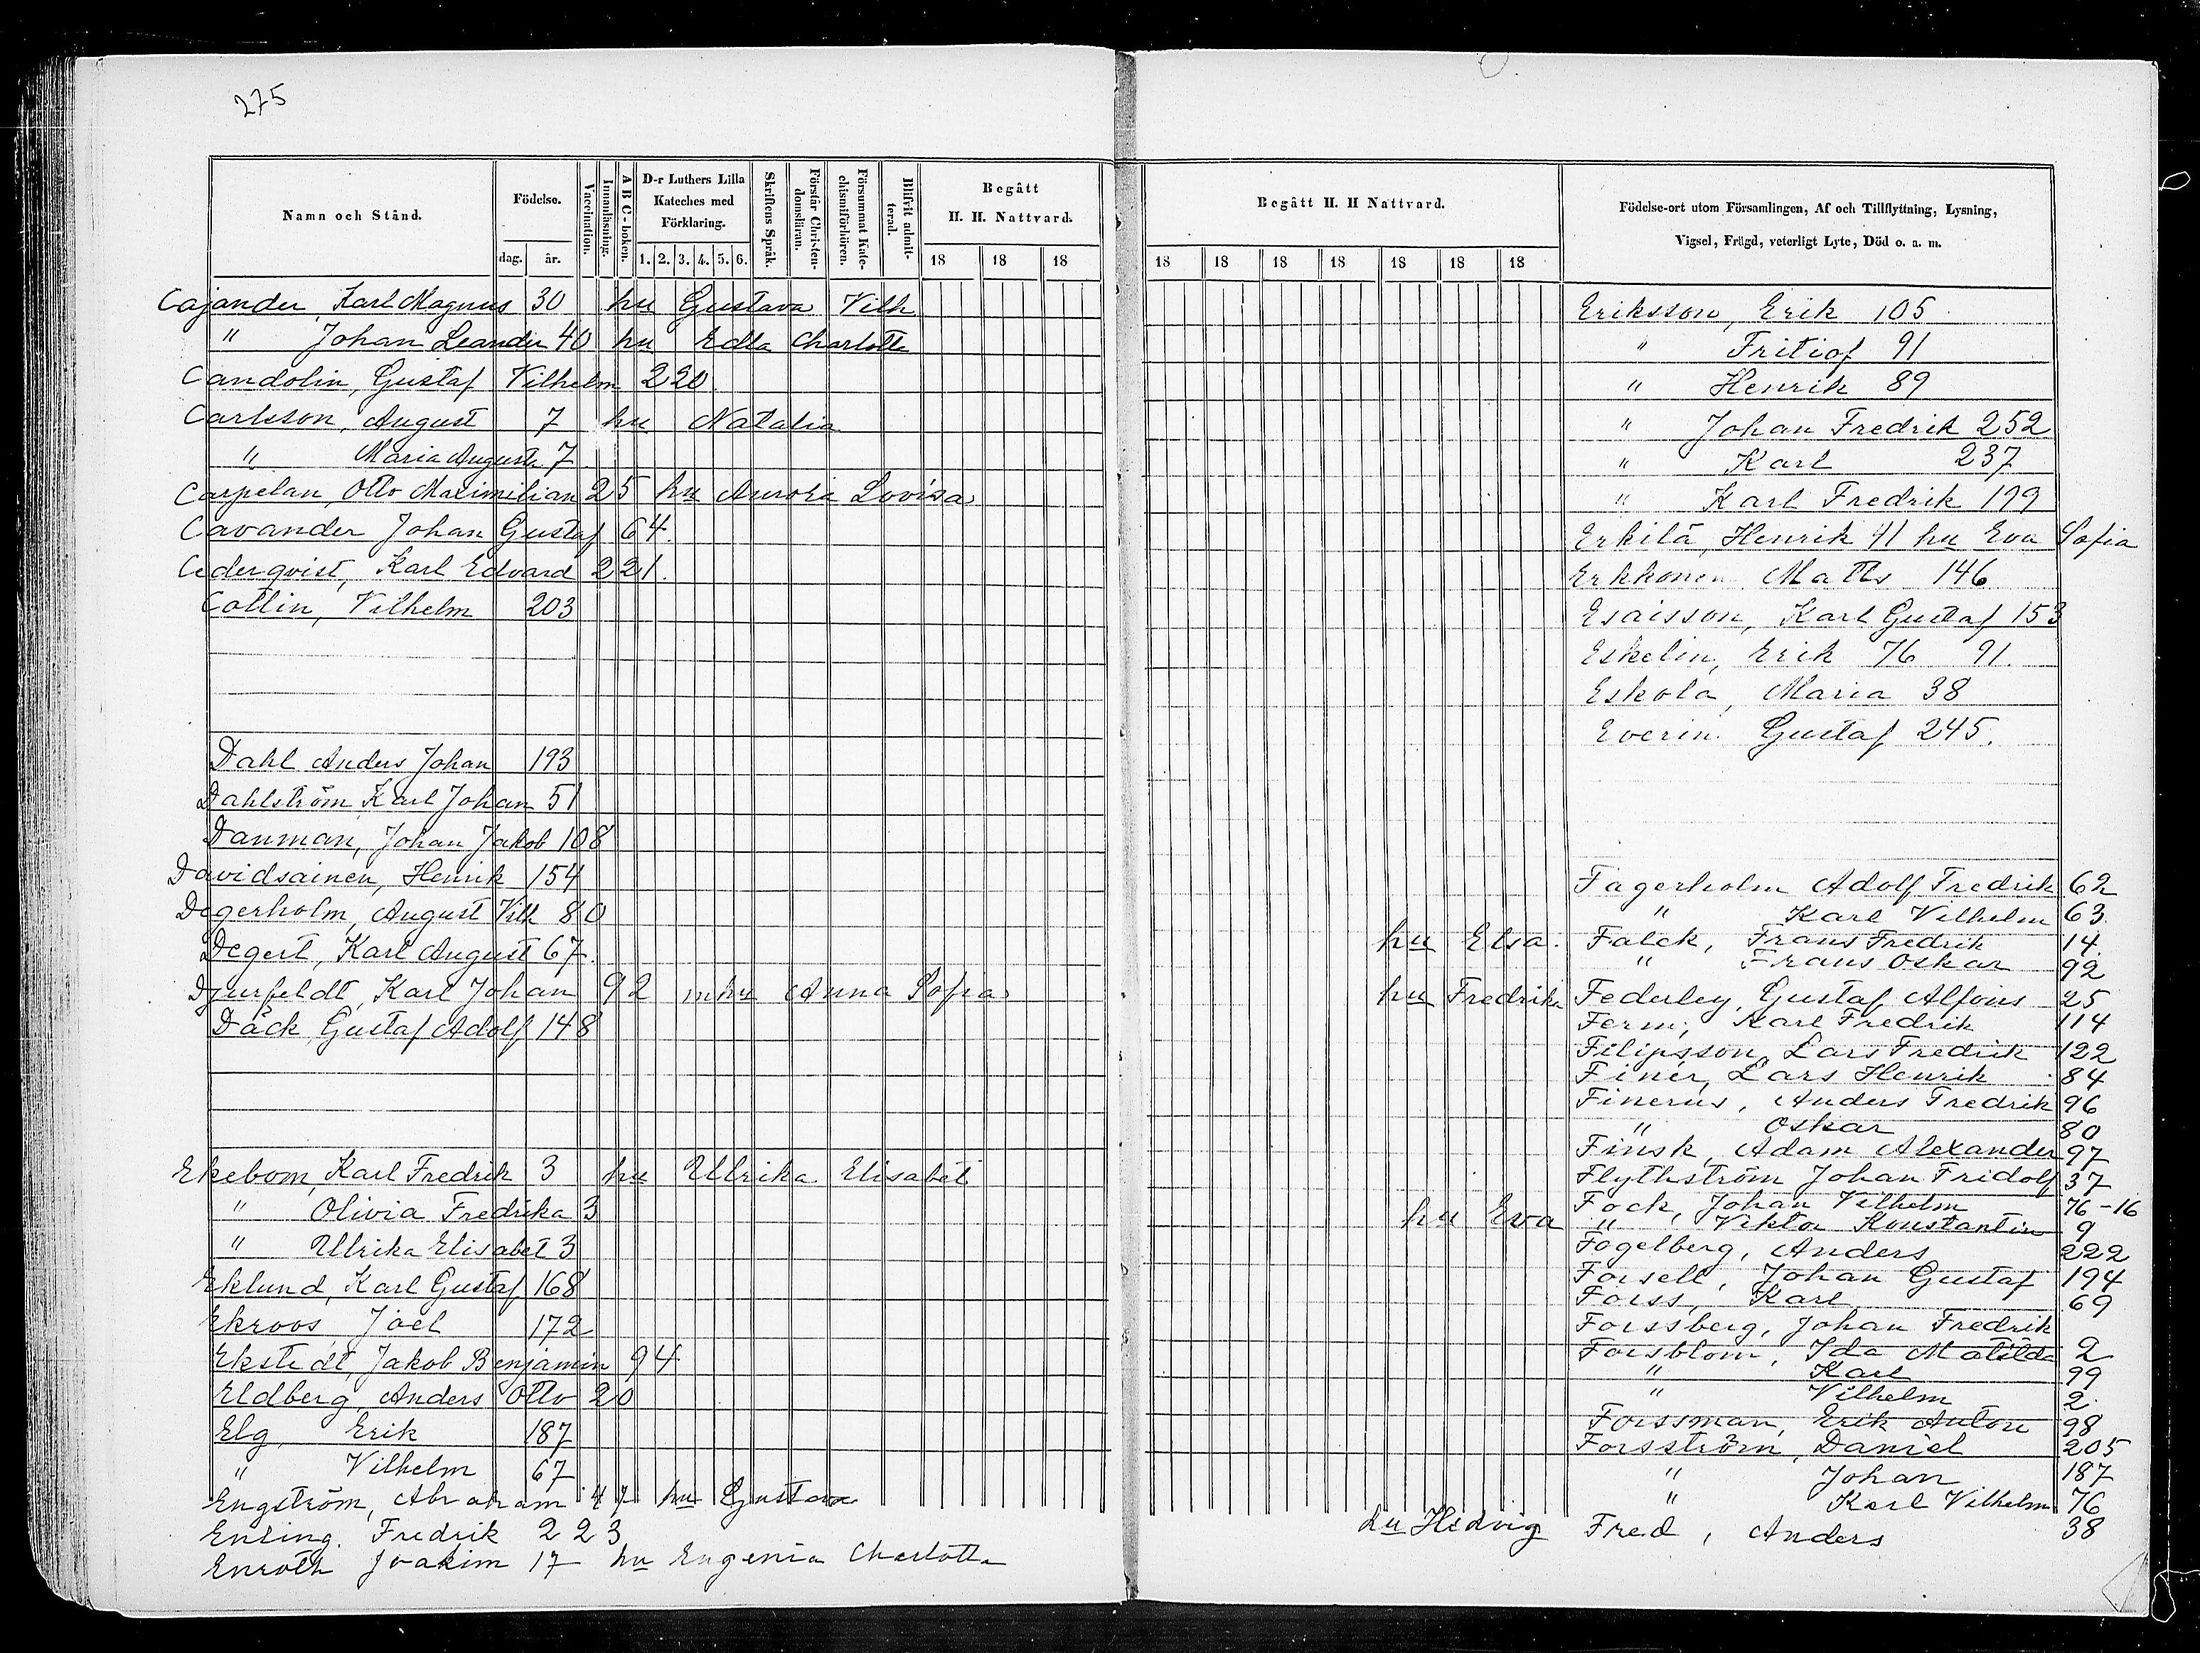 275
Namn och Stånd.
Födelse.
dag.
år.
Vaccination.
Innanläsning.
A B C - boken.
D-r Luthers Lilla
Kateches med
Förklaring.
1. 2. 3. 4. 5. 6.
Skriftens Språk.
Förstår Christen-
domsläran.
Försummat Kate-
chismiförhören.
Blifvit admit-
terad.
Begått
H. H. Nattvard.
18 18 18
Cajander, Karl Magnus 30 hu Gustava Vilh
" Johan Leander 40 hu Edla Charlotta
Candolin, Gustaf Vilhelm 220
Carlsson, August 7 hu Natalia
" Maria Augusta 7
Carpelan, Otto Maximilian 25 hu Aurora Lovisa
Cavander Johan Gustaf 64.
Cederqvist, Karl Edvard 221.
Collin, Vilhelm 203
Dahl Anders Johan 193
Dahlström Karl Johan 51
Danman, Johan Jakob 108
Davidsainen, Henrik 154
Degerholm, August Vilh 80
Degert, Karl August 67.
Djurfeldt, Karl Johan 92 mhu Anna Sofia
Däck, Gustaf Adolf 148
Ekebom, Karl Fredrik 3 hu Ullrika Elisabet
" Olivia Fredrika 3
" Ullrika Elisabet 3
Eklund, Karl Gustaf 168
Ekroos, Joel 172
Ekstedt, Jakob Benjamin 94
Eldberg, Anders Otto 20
Elg, Erik 187
" Vilhelm 67
Engström, Abraham 47 hu Gustava
Enling. Fredrik 223
Enroth Joakim 17 hu Eugenia Charlotta
Begått H. H Nattvard.
18 18 18 18 18 18 18
Födelse-ort utom Församlingen, Af och Tillflyttning, Lysning,
Vigsel, Frägd, veterligt Lyte, Död o. a. m.
Eriksson, Erik 105
" Fritiof 91
" Henrik 89
" Johan Fredrik 252
" Karl 237
" Karl Fredrik 199
Erkilä, Henrik 41 hu Eva Sofia
Erkkonen Matts 146
Esaisson, Karl Gustaf 153
Eskelin, Erik 76 91.
Eskola, Maria 38
Everin. Gustaf 245.
Fagerholm Adolf Fredrik 62
" Karl Vilhelm 63
hu Elsa. Falck, Frans Fredrik 14
" Frans Oskar 92
hu Fredrika Federley, Gustaf Alfons 25
Ferm, Karl Fredrik 114
Filipsson, Lars Fredrik 122
Finér, Lars Henrik 84
Finerus, Anders Fredrik 96
" Oskar 80
Finsk, Adam Alexander 97
Flythström Johan Fridolf 37
Fock, Johan Vilhelm 76-16
hu Eva " Viktor Konstantin 9
Fogelberg, Anders 222
Forsell, Johan Gustaf 194
Forss, Karl 69
Forssberg, Johan Fredrik
Forsblom, Ida Matilda 2
" Karl 99
" Vilhelm 2.
Forssman, Erik Anton 98
Forsström, Daniel 205
" Johan 187
" Karl Vilhelm 76
hu Hedvig Fred, Anders 38